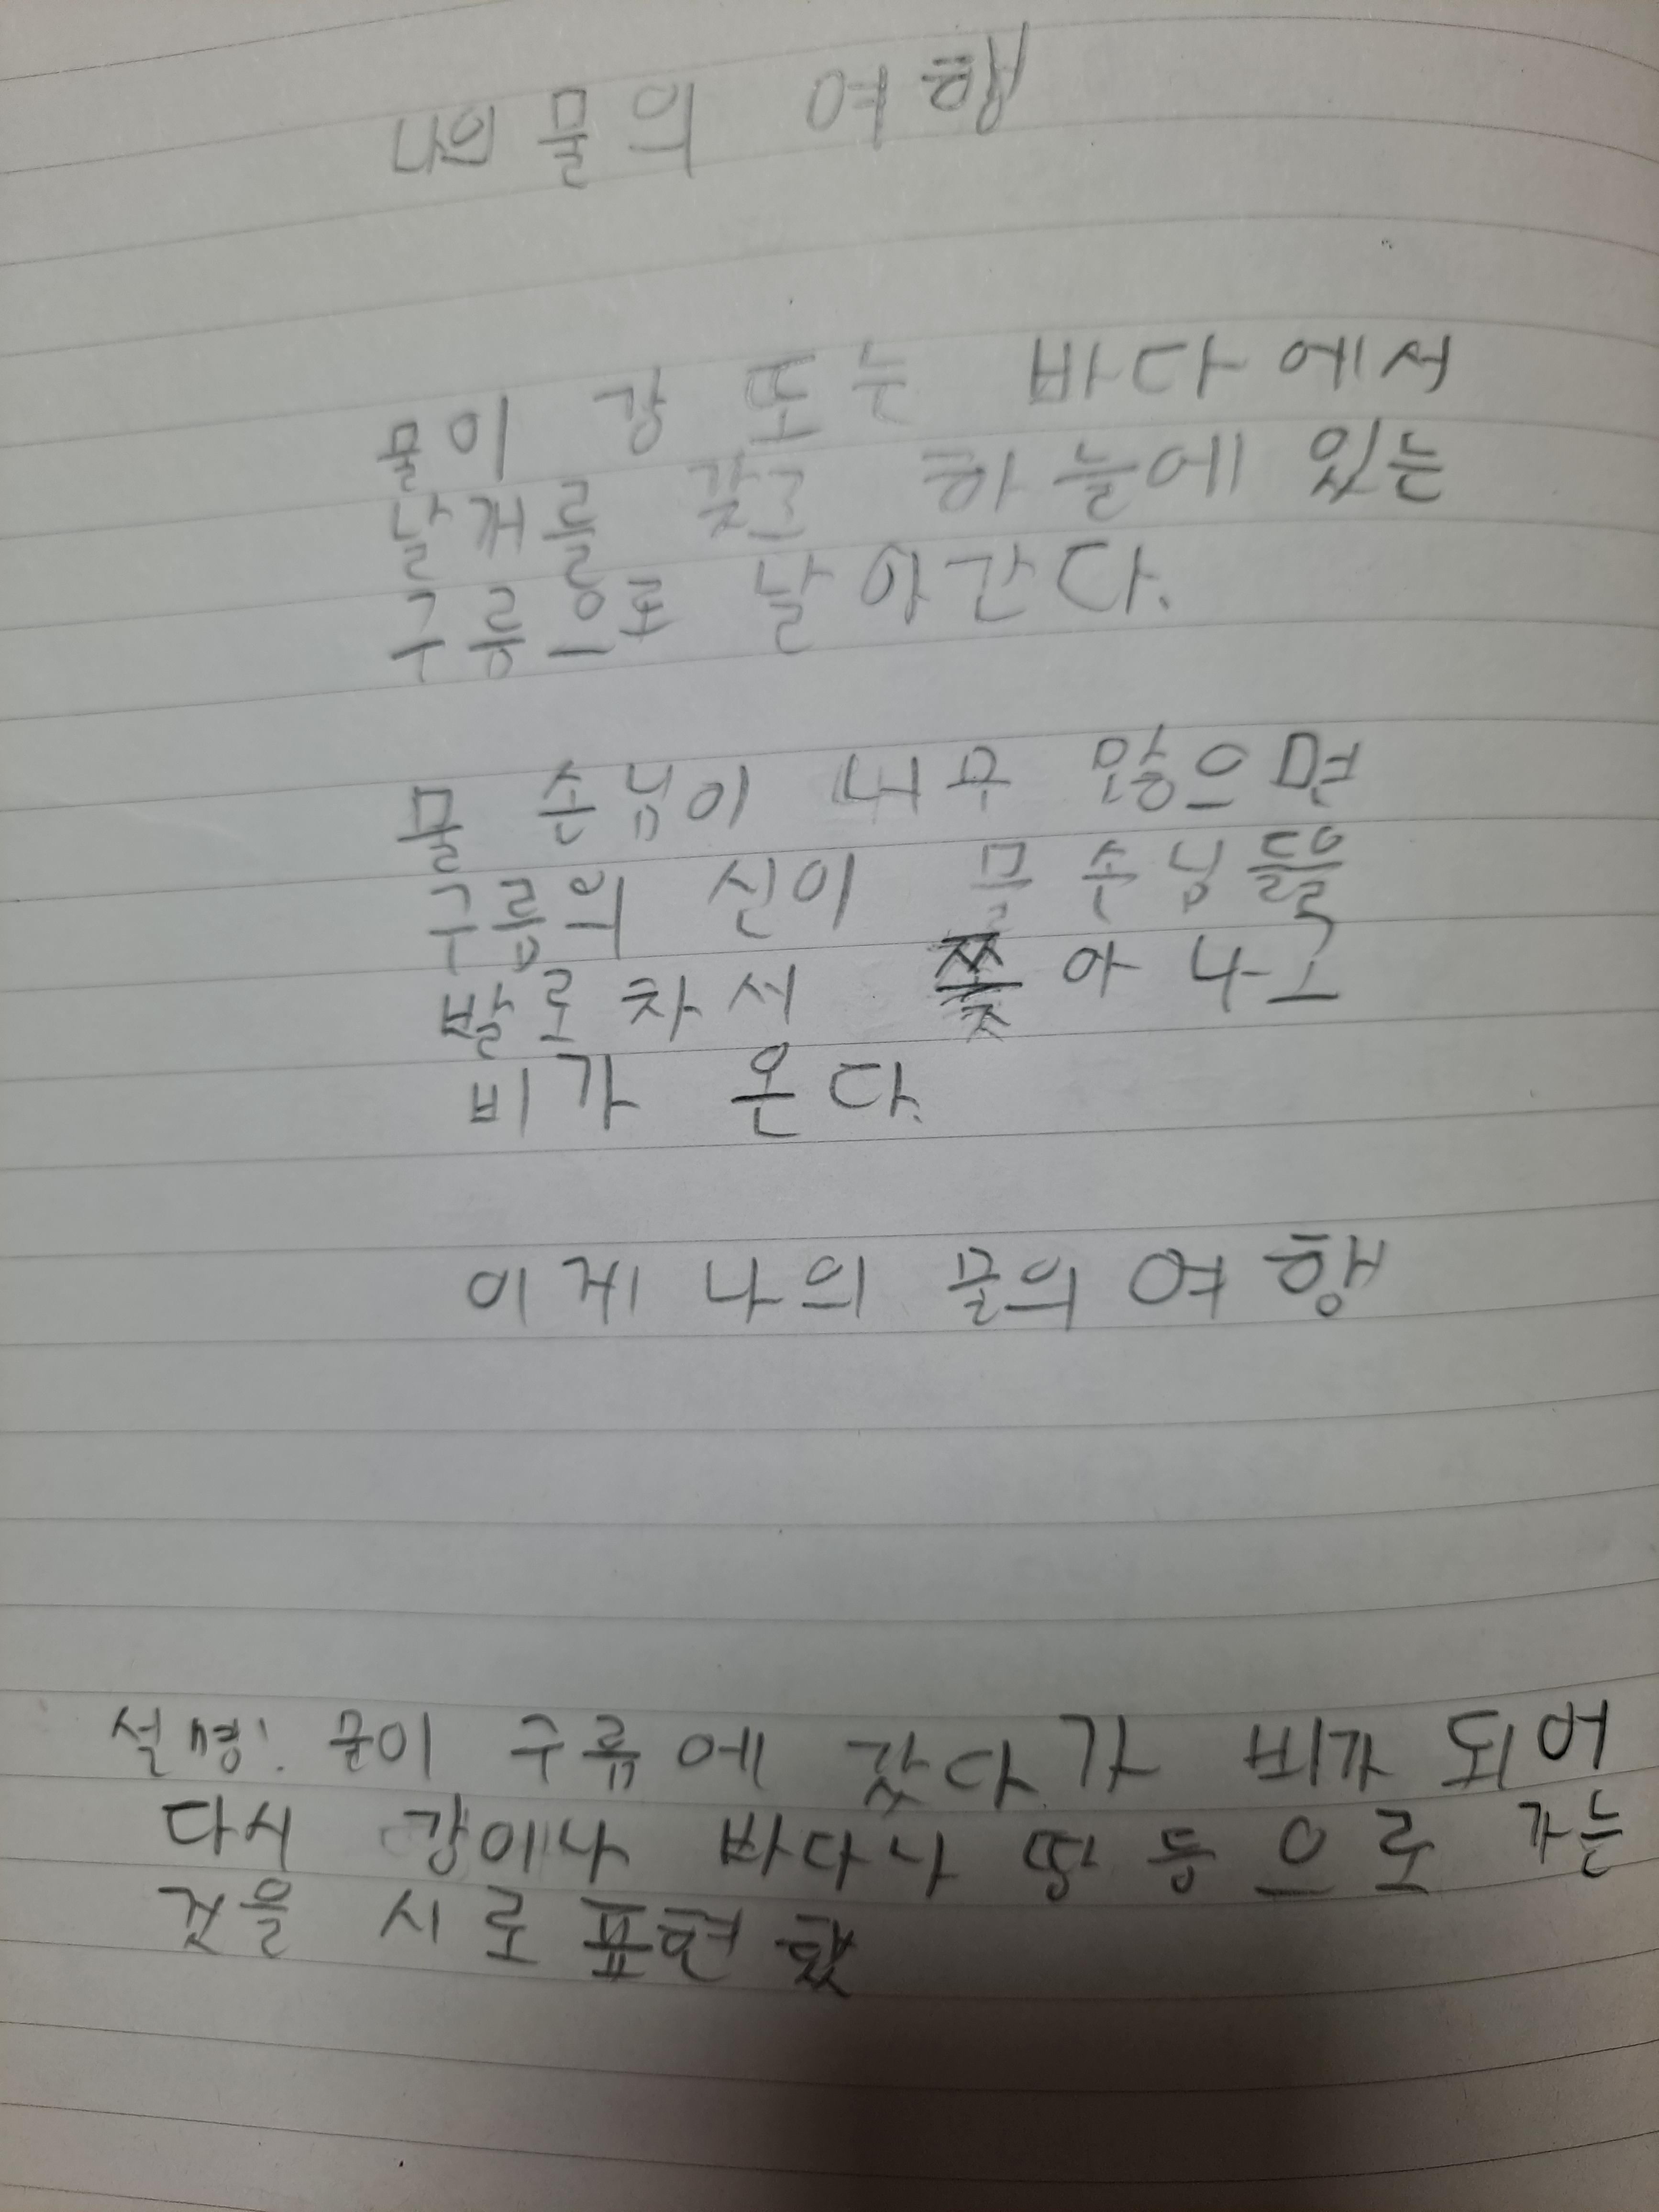 나의 물의 여행
물이 강 또는 바다에서
날개를 갖고 하늘에 있는
구름으로 날아간다.
물 손님이 너무 많으면
구름의 신이 물 손님들을
발로 차서 쫓아 나고
비가 온다.
이게 나의 물의 여행
설명: 물이 구름에 갔다가 비가 되어
다시 강이나 바다나 땅 등으로 가는
것을 시로 표현했